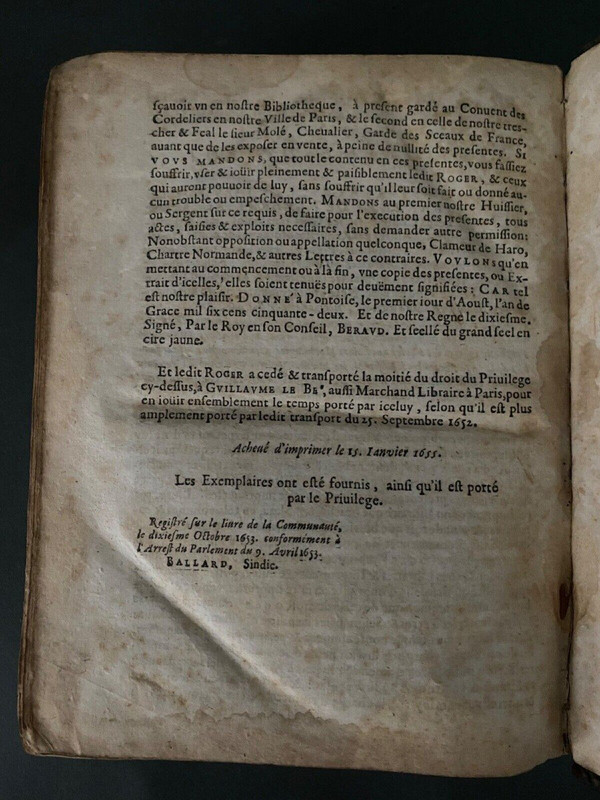 sçauoit vn en nostre Bibliotheque, à present gardé au Conuent des
Cordeliers en nostre Ville de Paris, & le second en celle de nostre tres-
cher & Feal le sieur Molé, Cheualier, Garde des Sceaux de France,
auant que de les exposer en vente, à peine de nullité des presentes. SI
VOVS MANDONS, que tout le contenu en ces presentes, vous fassiez
souffrir, vser & ioüir pleinement & paisiblement ledit ROGER, & ceux
qui auront pouuoir de luy, sans souffrir qu'il leur soit fait ou donné au-
cun trouble ou empeschement. MANDONS au premier nostre Huissier,
ou Sergent sur ce requis, de faire pour l'execution des presentes, tous
actes, saisies & exploits necessaires, sans demander autre permission:
Nonobstant opposition ou appellation quelconque, Clameur de Haro,
Chartre Normande, & autres Lettres à ce contraires. VOVLONS qu'en
mettant au commençement ou à là fin, vne copie des presentes, ou Ex-
trait d'icelles, elles soient tenuës pour deuëment signifiées: CAR tel
est nostre plaisir. DONNÉ à Pontoise, le premier iour d'Aoust, l'an de
Grace mil six cens cinquante-deux. Et de nostre Regne le dixiesme.
Signé, Par le Roy en son Conseil, BERAVD. Et seellé du grand seel en
cire jaune.
Et ledit ROGER a cedé & transporté la moitié du droit du Priuilege
cy-dessus, à GVILLAVME LE BE', aussi Marchand Libraire à Paris, pour
en ioüir ensemblement le temps porté par iceluy, selon qu'il est plus
amplement porté par ledit transport du 25. Septembre 1652.
Acheué d'imprimer le 15. Ianvier 1655.
Les Exemplaires ont esté fournis, ainsi qu'il est porté
par le Priuilege.
Registré sur le liure de la Communauté,
le dixiesme Octobre 1653. conformément à
l'Arrest du Parlement du 9. Avril 1653.
BALLARD, Sindic.